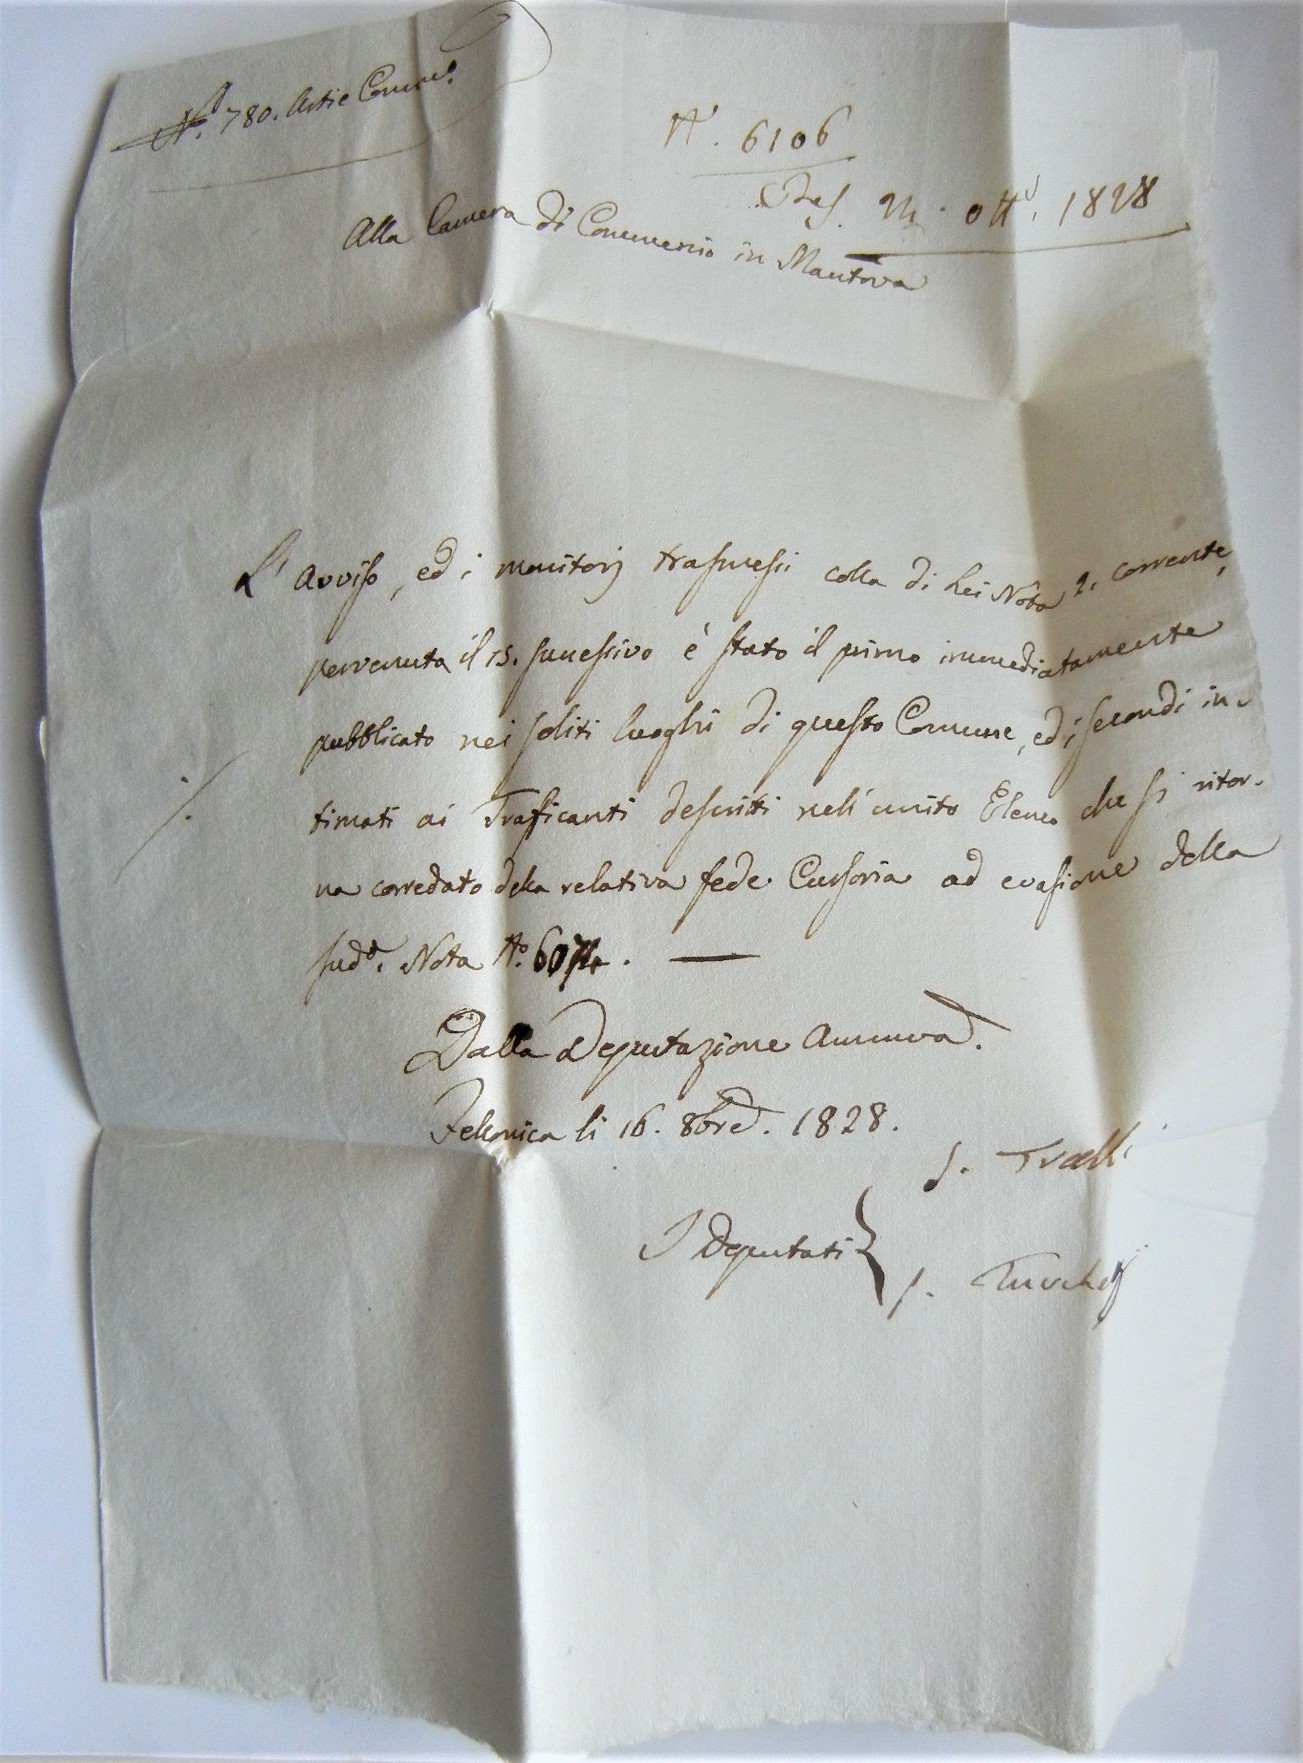 N.º 780. Arti e Comm.º
N.º 6106
Alla Camera di Commercio in Mantova
ott.e 1828
L'avviso, ed i monitorj trasmessi colla di Lei Nota 2. corrente,
pervenuta il 15. successivo è stato il primo immediatamente
pubblicato nei soliti luoghi di questo Comune, ed i secondi in-
timati ai Trafficanti descritti nell'unito Elenco che si ritor-
na corredato della relativa fede Cursoria ad evasione della
sud.a Nota N.º
Dalla Deputazione Ammva.
Felonica li 16. 8bre. 1828.
I Deputati